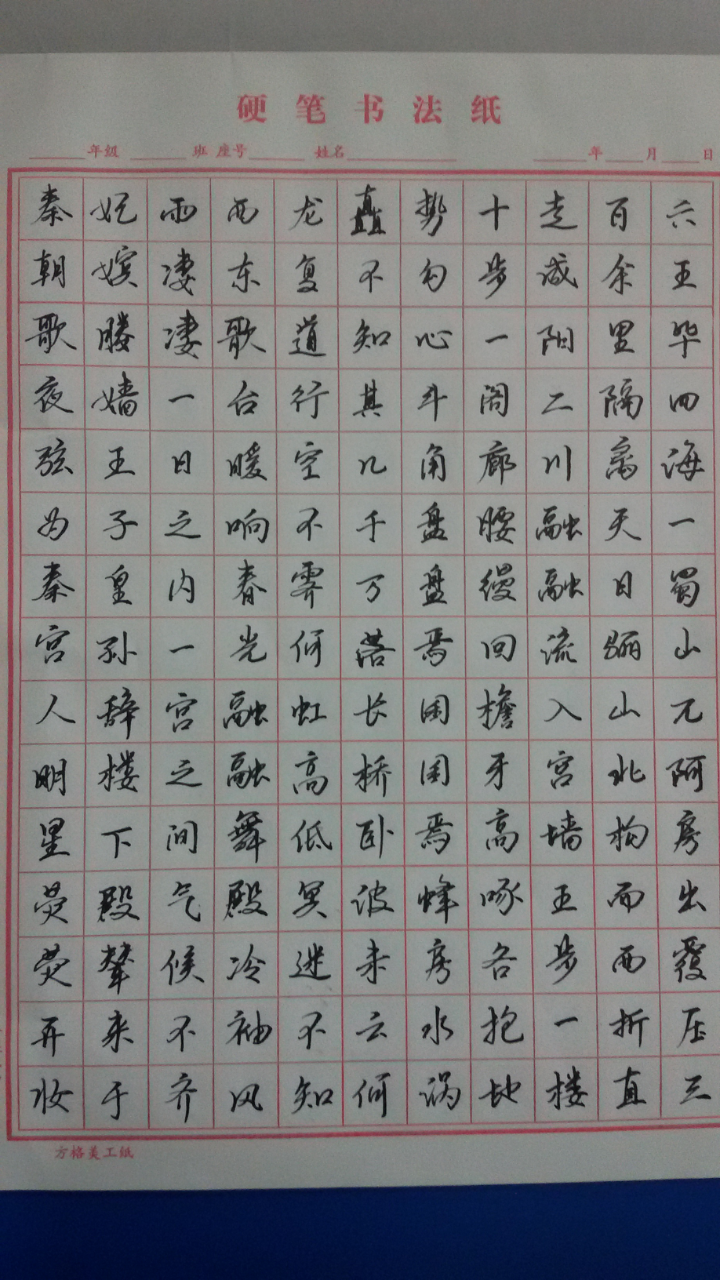 硬笔书法纸
年级 班 座号 姓名 年 月 日
六王毕四海一蜀山兀阿房出覆压三
百余里隔离天日骊山北构而西折直
走咸阳二川融融流入宫墙五步一楼
十步一阁廊腰缦回檐牙高啄各抱地
势勾心斗角盘盘焉囷囷焉蜂房水涡
矗不知其几千万落长桥卧波未云何
龙复道行空不霁何虹高低冥迷不知
西东歌台暖响春光融融舞殿冷袖风
雨凄凄一日之内一宫之间气候不齐
妃嫔媵嫱王子皇孙辞楼下殿辇来于
秦朝歌夜弦为秦宫人明星荧荧开妆
方格美工纸